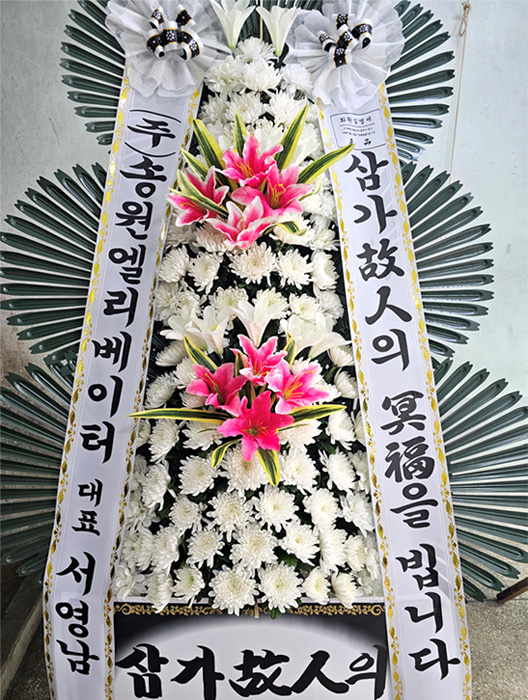 (주)송원엘리베이터 대표 서영남
삼가 故人의 冥福을 빕니다
삼가 故人의